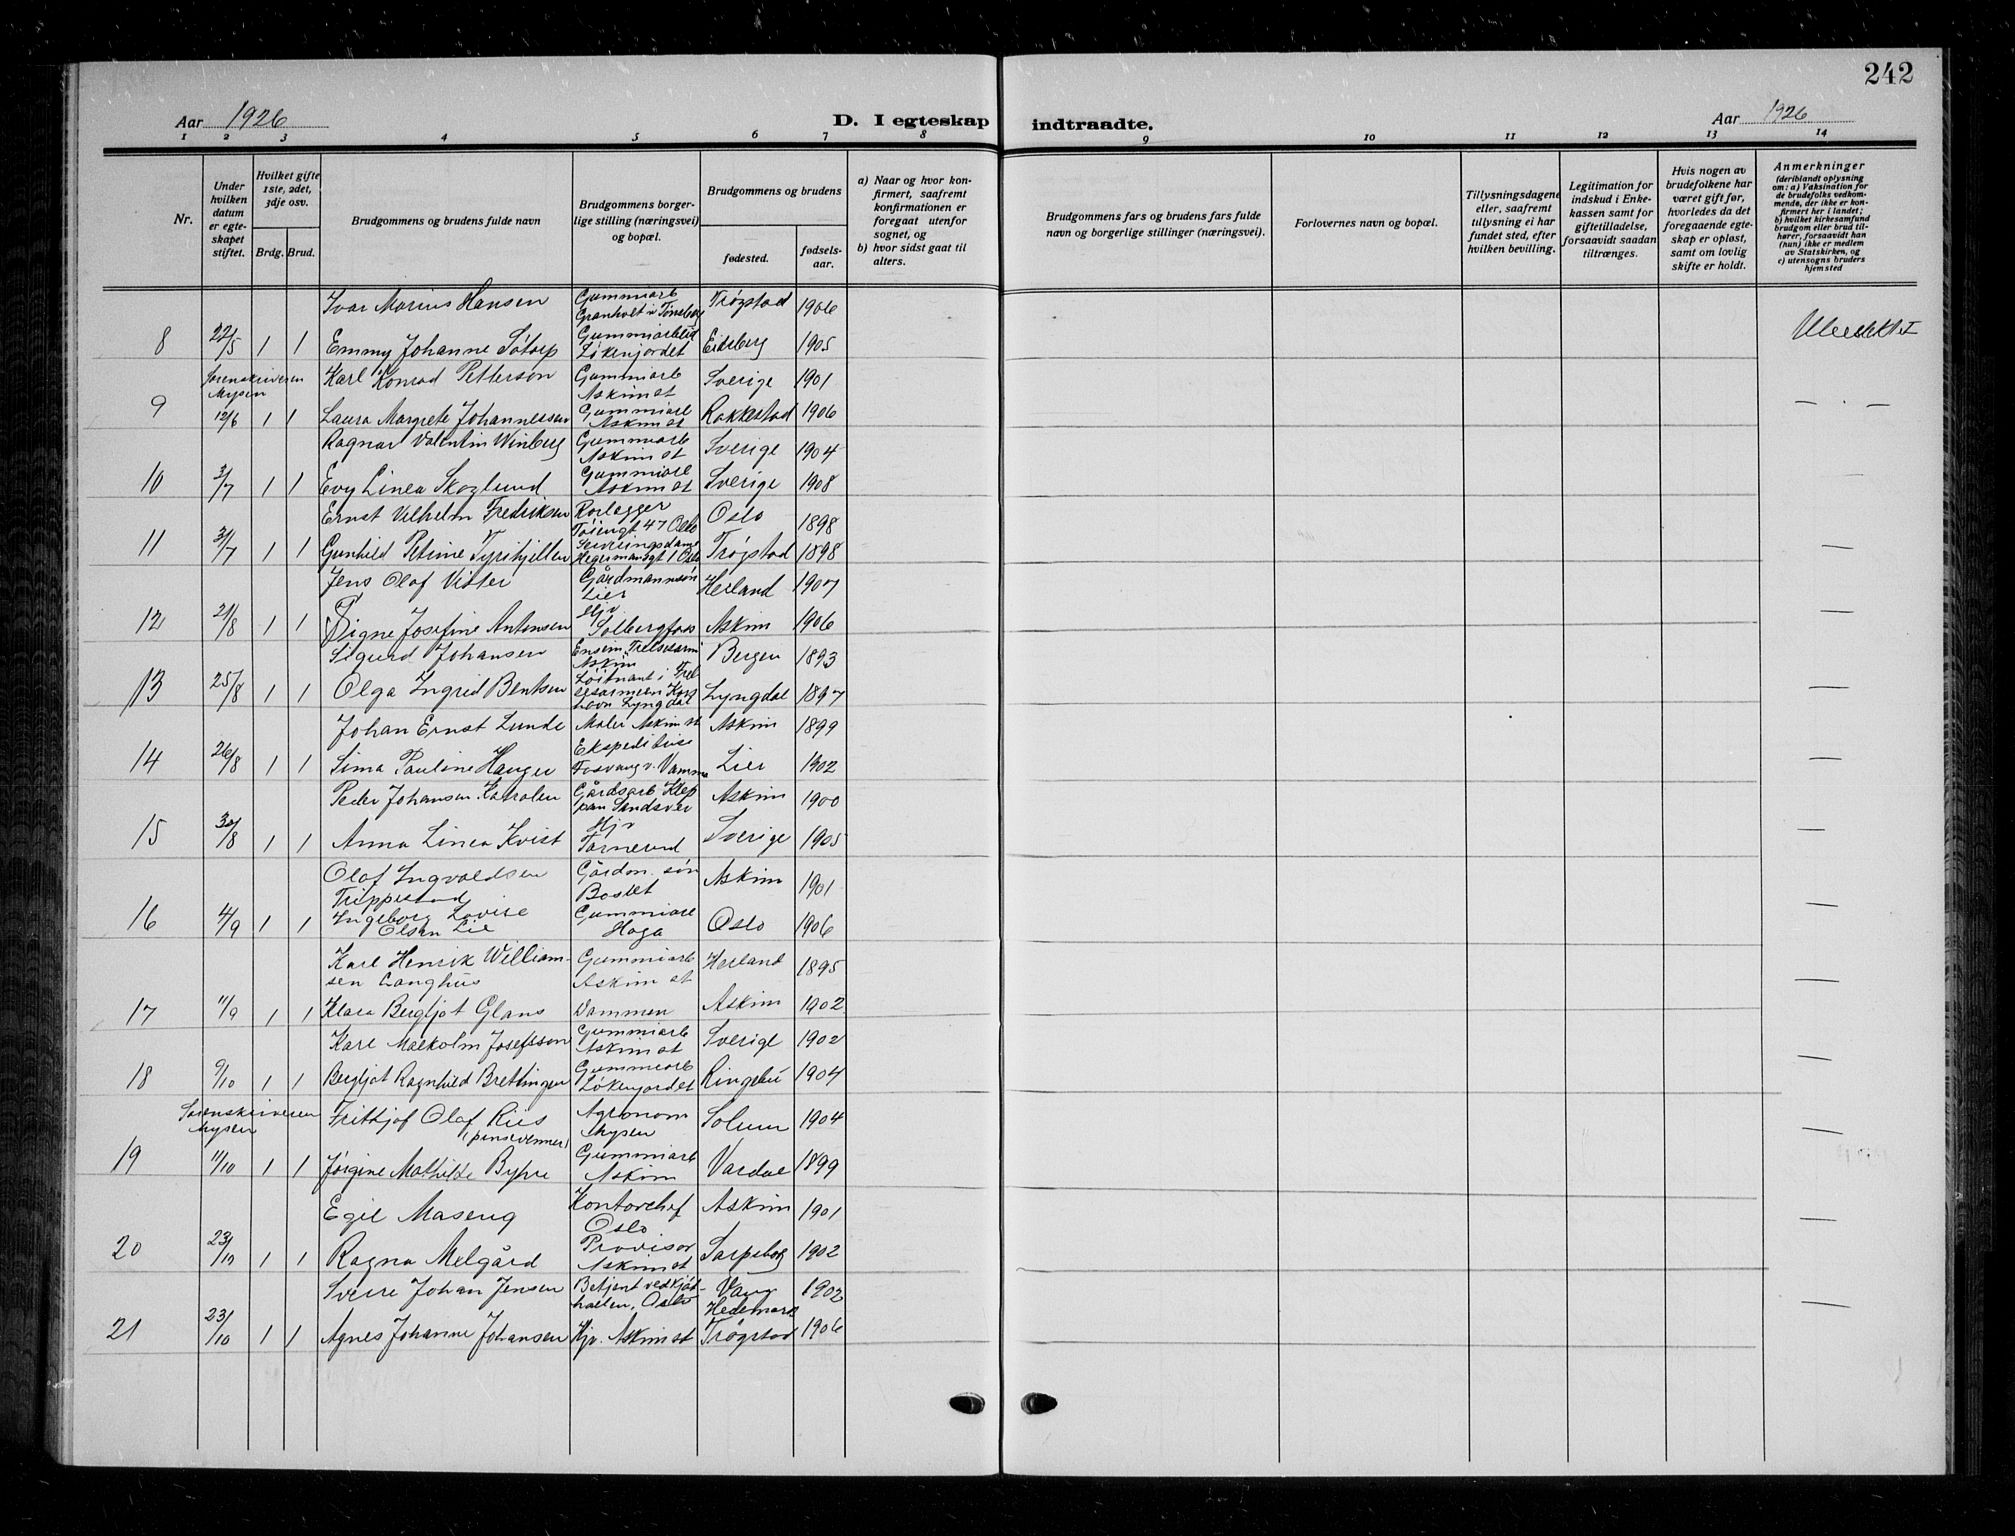 242
Aar 1926
D. I egteskap indtraadte.
Aar 1926
1 2 3 4 5 6 7 8 9 10 11 12 13 14
Nr.
Under hvilken datum er egteskapet stiftet.
Hvilket gifte 1ste, 2det, 3dje osv.
Brdg. Brud.
Brudgommens og brudens fulde navn
Brudgommens borgerlige stilling (næringsvei) og bopæl.
Brudgommens og brudens
fødested.
fødselsaar.
a) Naar og hvor konfirmert, saafremt konfirmationen er foregaat utenfor sognet, og
b) hvor sidst gaat til alters.
Brudgommens fars og brudens fars fulde navn og borgerlige stillinger (næringsvei).
Forlovernes navn og bopæl.
Tillysningsdagene eller, saafremt tillysning ei har fundet sted, efter hvilken bevilling.
Legitimation for indskud i Enkekassen samt for giftetilladelse, forsaavidt saadan tiltrænges.
Hvis nogen av brudefolkene har været gift før, hvorledes da det foregaaende egteskap er opløst, samt om lovlig skifte er holdt.
Anmerkninger
(deriblandt oplysning om: a) Vaksination for de brudefolks vedkommende, der ikke er konfirmert her i landet; b) hvilket kirkesamfund brudgom eller brud tilhører, forsaavidt han (hun) ikke er medlem av Statskirken, og c) utensogns bruders hjemsted
Ivar Marius Hansen Gummiarb Granholt v Tønsberg Trøgstad 1906
8 22/5 1 1 Emmy Johanne Søtorp Gummiarbeid Løkenjordet Eidsberg 1905
Sorenskriveren Mysen Karl Konrad Petterson Gummiarb Askim st Sverige 1901
9 12/6 1 1 Laura Margrete Johannessen Gummiarb Askim st Rakkestad 1906 — . —
Ragnar Valentin Winberg Gummiarb Askim st Sverige 1904
10 3/7 1 1 Evy Linea Skoglund Gummiarb Askim st Sverige 1908 —
Ernst Vilhelm Fredriksen Rørlegger Tøiengt 47 Oslo Oslo 1898
11 31/7 1 1 Gunhild Petrine Tyrihjellen Serveringsdame Hegermansgt 1 Oslo Trøgstad 1898 —
Jens Olaf Vister Gårdmannssøn Lier Herland 1907
12 21/8 1 1 Signe Josefine Antonsen Hjv Solbergfoss Askim 1906 —
Sigurd Johansen Ensein, Frelsesarm Askim Bergen 1893
13 25/8 1 1 Olga Ingrid Bentsen Løitnant i Frelsesarmeen Korshavn Lyngdal Lyngdal 1897 —
Johan Ernst Lunde Maler Askim st Askim 1899
14 26/8 1 1 Sima Pauline Hauger Ekspeditrise Fosvang v. Vamma Lier 1902 —
Peder Johansen Gårdsarb Kleppan Sandsver Askim 1900
15 30/8 1 1 Anna Linea Kvist Hjv Tornerud Sverige 1905 —
Olaf Ingvaldsen Trippestad Gårdm. søn Askim 1901
16 4/9 1 1 Ingeborg Lovise Olsen Lie Gummiarb Haga Oslo 1906 —
Karl Henrik Williamsen Langhus Gummiarb Askim st Herland 1895
17 11/9 1 1 Klara Bergljot Glans Dammen Askim 1902 —
Karl Malkolm Josefsson Gummiarb Askim st Sverige 1902
18 9/10 1 1 Bergljot Ragnhild Brettingen Gummiarb Løkenjordet Ringebu 1904 —
Sorenskriveren Mysen Frithjof Olaf Riis (pinsevenner) Agronom Mysen Solum 1904
19 11/10 1 1 Jørgine Mathilde Byhre Gummiarb Askim Vardal 1899 —
Egil Maseng Kontorchef Oslo Askim 1901
20 23/10 1 1 Ragna Melgård Provisor Askim st Sarpsborg 1902 —
Sverre Johan Jensen Betjent ved kjøthallen, Oslo Vang Hedemark 1902
21 23/10 1 1 Agnes Johanne Johansen Hjv. Askim st Trøgstad 1906 —